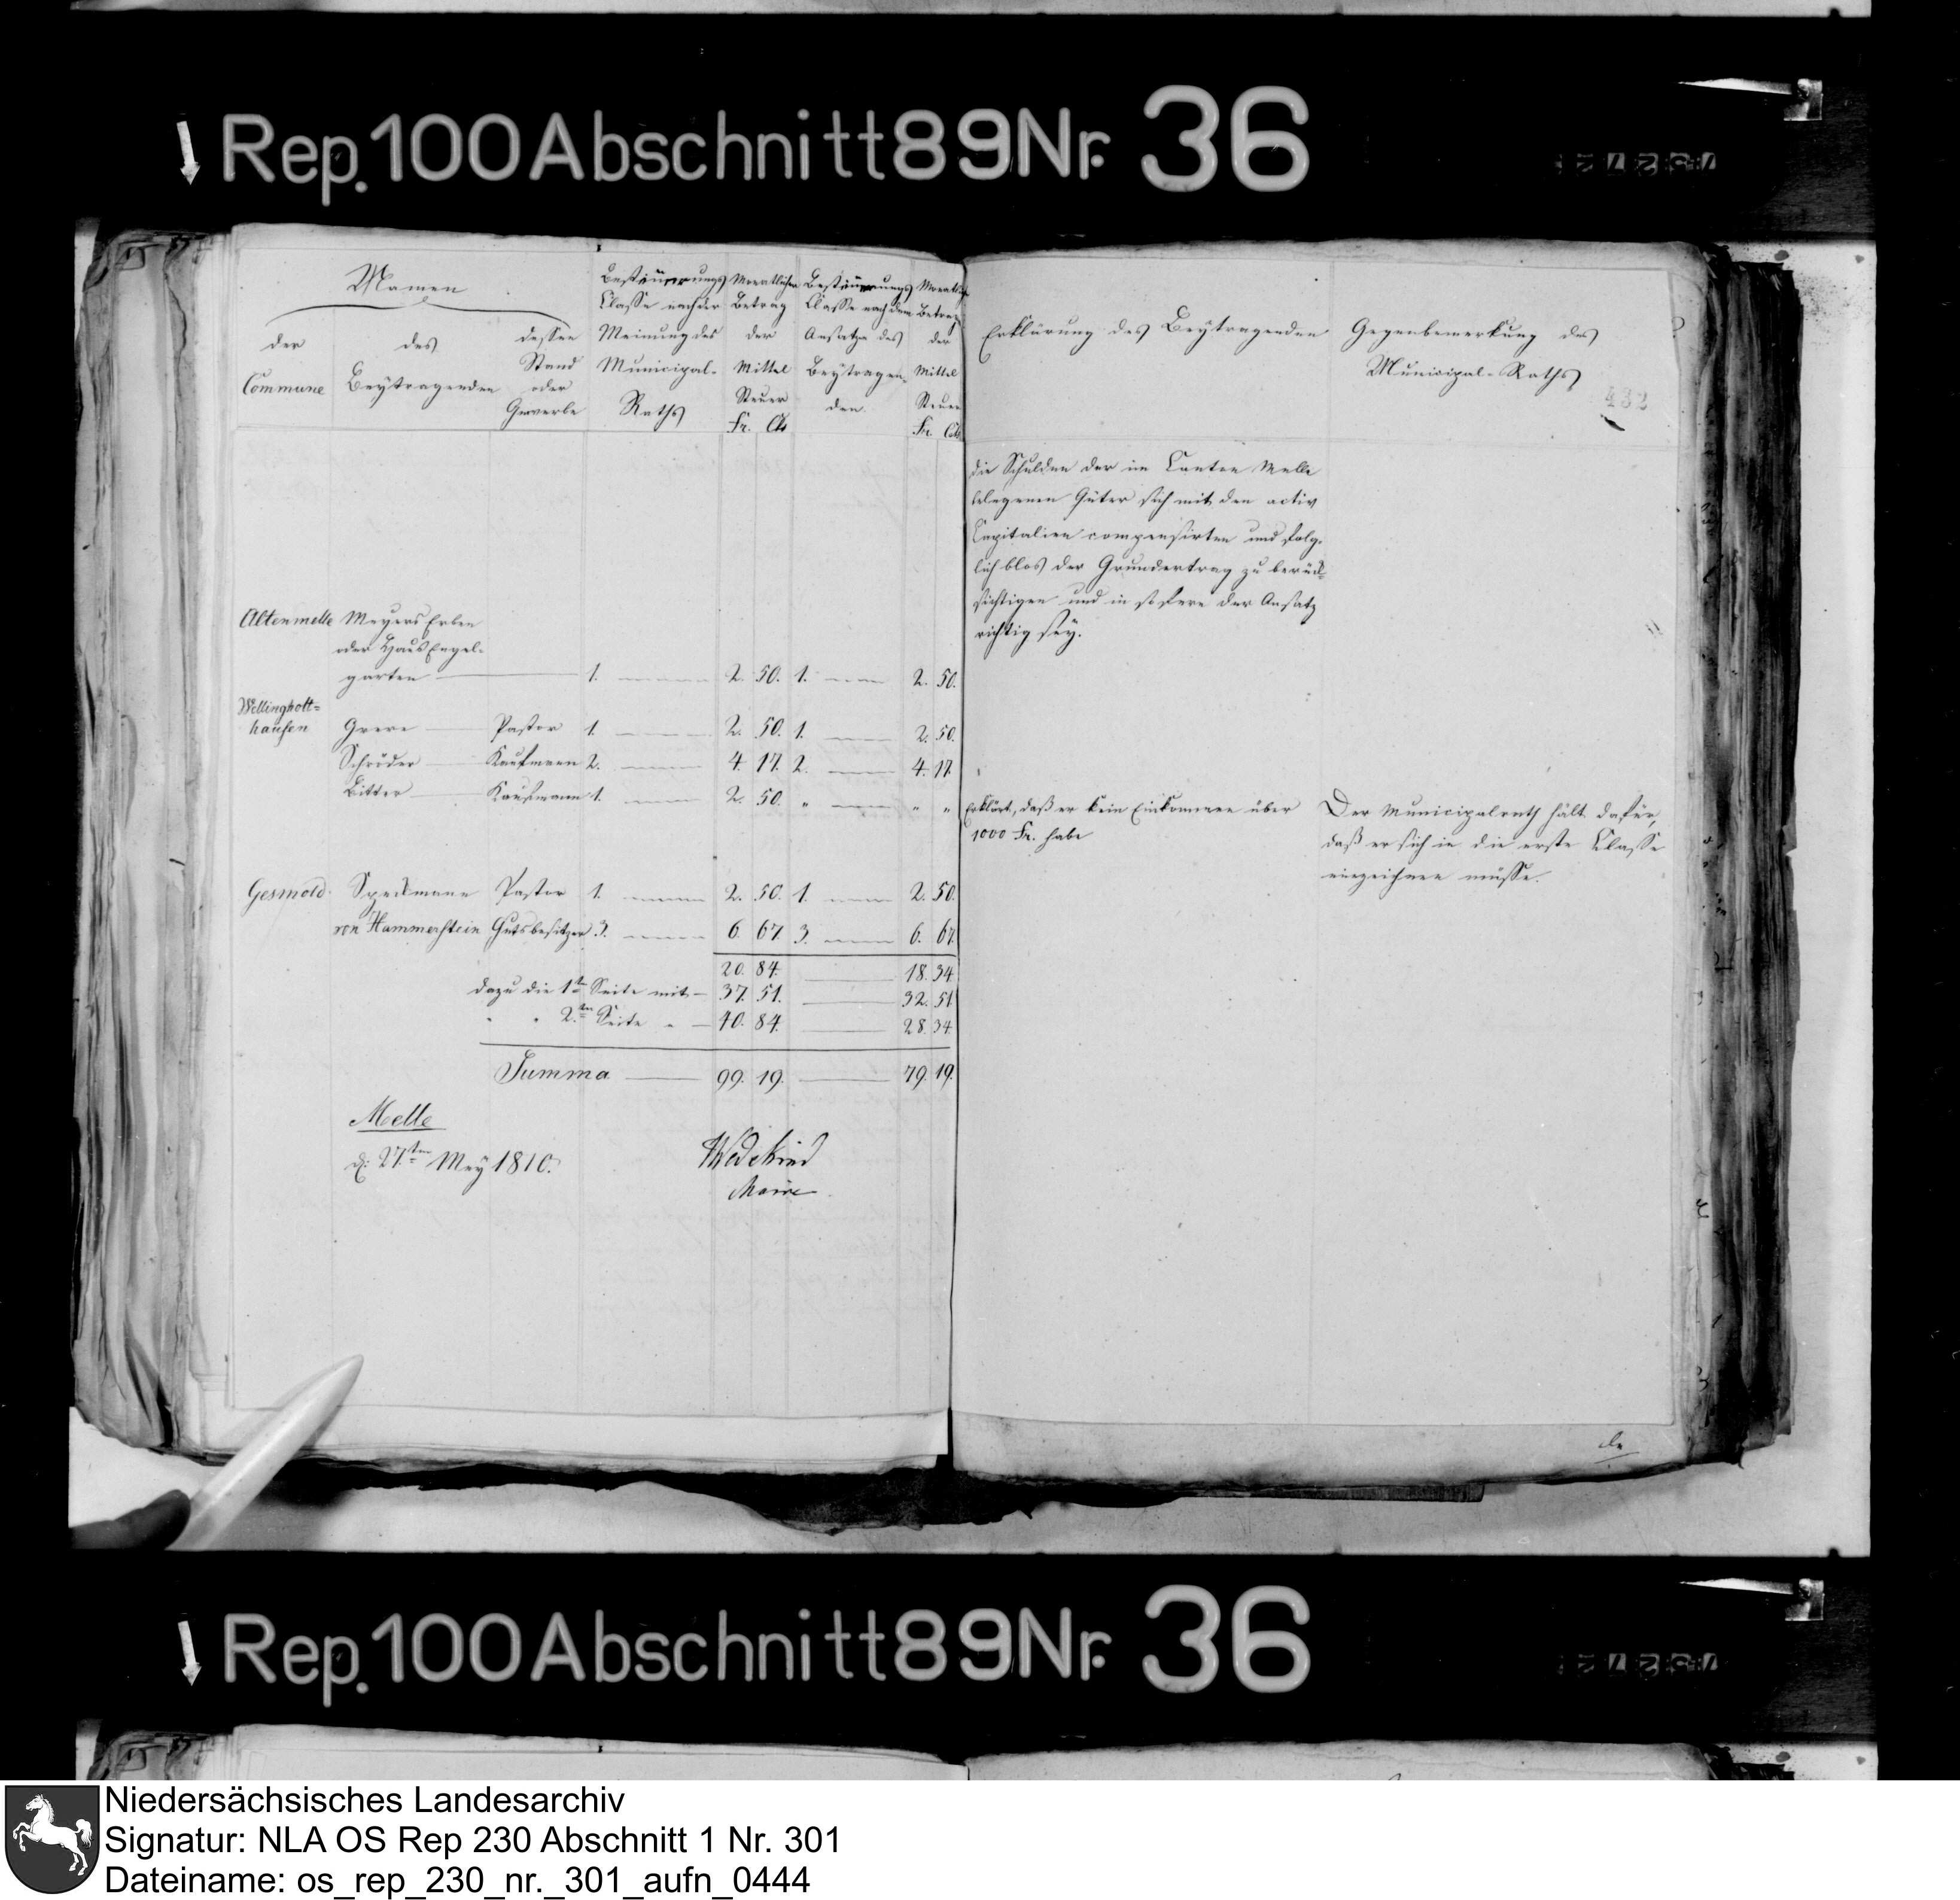 Rep. 100 Abschnitt 89 Nr. 36
Namen
der Commune
des Beytragenden
dessen Stand oder Gewerbe
Besteuerungs Classe nach der Meinung des Municipal-Raths
Monatlicher Betrag der Mittel Steuer
Fr. Cts
Besteuerungs Classe nach dem Ansatze des Beytragenden.
Monatlicher Betrag der Mittel Steuer
Fr. Cts
Erklärung des Beytragenden
Gegenbemerkung des
Municipal-Raths
432
die Schulden der im Canton Melle
belegenen Güter sich mit den activ
Capitalien compensirten und folg-
lich blos der Grundertrag zu berück-
sichtigen und in so fern der Ansatz
richtig sey.
Altenmelle Meyers Erben
oder Haus Engel-
garten 1. 2. 50. 1. 2. 50.
Wellingholt=
hausen Greve Pastor 1. 2. 50. 1. 2. 50.
Schröder Kaufmann 2. 4. 17. 2. 4. 17.
Bitter Kaufmann 1. 2. 50. " " "
Erklärt, daß er kein Einkommen über
1000 Fr. habe
Der Municipalrath hält dafür,
daß er sich in die erste Classe
einzeichnen müsse.
Gesmold Speckmann Pastor 1. 2. 50. 1. 2. 50.
von Hammerstein Gutsbesitzer 3. 6. 67. 3. 6. 67.
20. 84. 18. 34
dazu die 1te Seite mit 37. 51. 32. 51
" " 2te Seite " 40. 84. 28. 34.
Summa 99. 19. 79. 19.
Melle
d. 27sten Mey 1810.
Wedekind
Maire
Rep. 100 Abschnitt 89 Nr. 36
Niedersächsisches Landesarchiv
Signatur: NLA OS Rep 230 Abschnitt 1 Nr. 301
Dateiname: os_rep_230_nr._301_aufn_0444